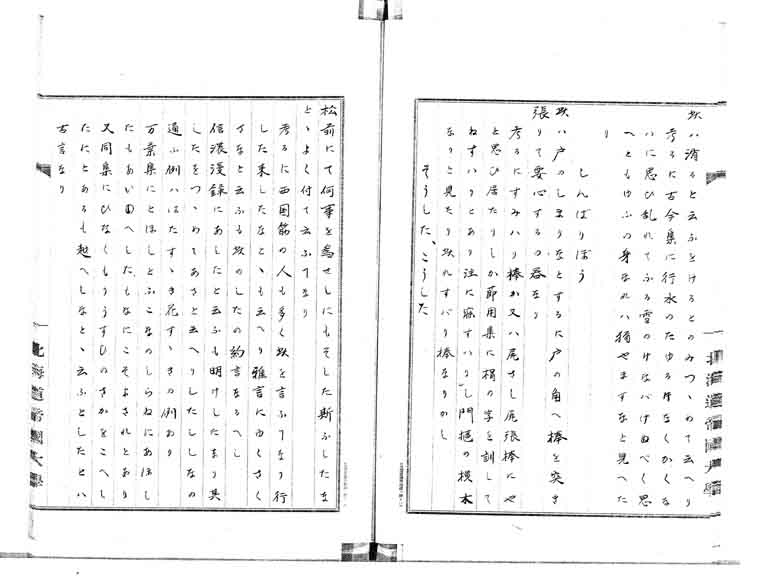 此ハ消ると云ふとけるとのみつゝめて云へり
考るに古今集に行水のたゆる時なくかくな
ハに思ひ乱れてふる雪のけなバけぬべく思
へともゆふの身なれハ猶やますなと見へた
り
しんばりぼう
此ハ戸のしまりなとするに戸の角へ棒を突き
張りて要心するの器なり
考るにすみハり棒か又ハ尾さし尾張棒にや
と思ひ居たりしか節用集に榾の字を訓して
ねすハりとあり注に寐すハりし門梱の横木
なりと見たり此れすバり棒なりかし
そうした、こうした
松前にて何事を為せしにもそした斯ふしたな
とゝよく付て云ふてなり
考るに西国筋の人も多く此を言ふてなり行
した来したなとゝも云へり雅言にゆくさく
さなと云ふも此のしたの約言なるへし
信濃漫録にあしたと云ふも明けしたなり其
したをつゝめてあさと云へりしたししなの
通ふ例ハはたすゝき花すゝきの例あり
万葉集にとほしとふこなのしらねにあほし
たもあハ由へしたもなにこそよされとあり
又同集にひなくもりうすひのさかをこへし
たにとあるも越へしなとゝ云ふとしたとハ
古言なり
北海道帝国大学
北海道帝国大学